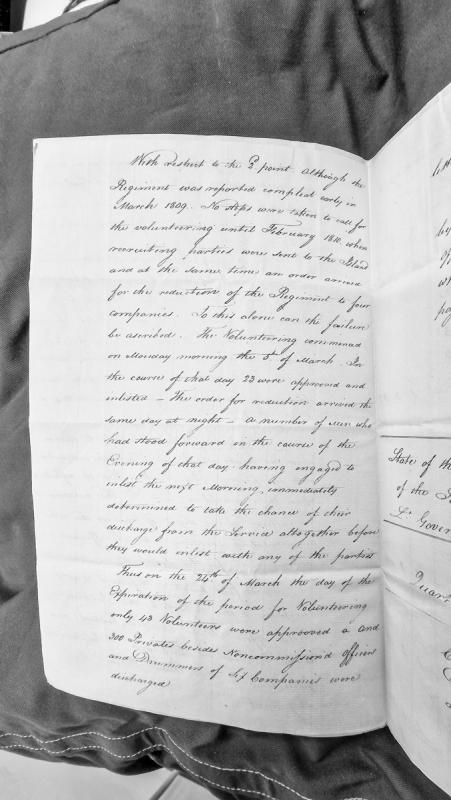 With respect to the 2d point although the
Regiment was reported compleat early in
March 1809. No steps were taken to call for
the volunteering until February 1810. when
recruiting parties were sent to the Island
and at the same time an order arrived
for the reduction of the Regiment to four
companies. To this alone can the failure
be ascribed. The Volunteering commenced
on Monday morning the 5th of March. In
the course of that day 23 were approved and
enlisted – The order for reduction arrived the
same day at night – a number of Men who
had stood forward in the course of the
Evening of that day having engaged to
enlist the next Morning, immediately
determined to take the chance of their
discharge from the Service altogether before
they would enlist with any of the parties
Thus on the 24th of March the day of the
Expiration of the period for Volunteering
only 43 Volunteers were approoved a and
300 Privates besides Noncommission'd officers
and Drummers of Six Companies were
discharged
State of the
of the
Lt. Gover